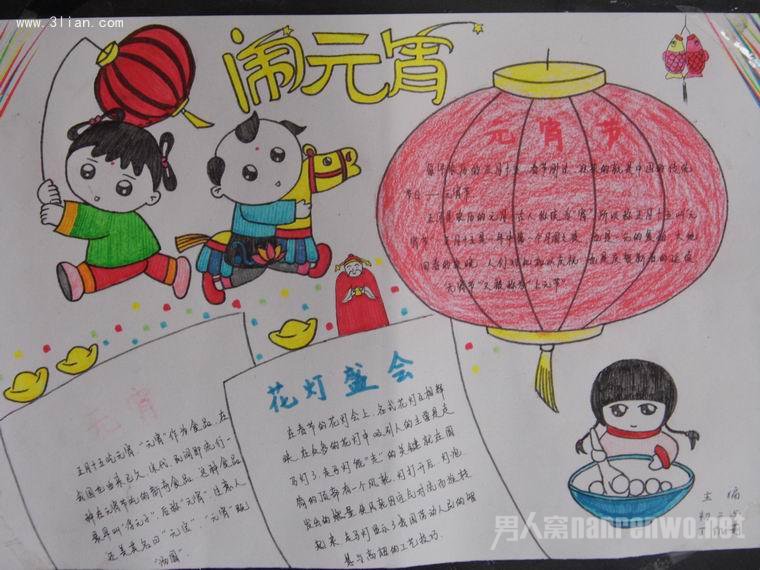 www.3lian.com
闹元宵
元宵节
每年农历的正月十五,春节刚过,迎来的就是中国的传统
节日——元宵节
正月是农历的元月,古人称夜为"宵"所以称正月十五叫元
宵节。正月十五是一年中第一个月圆之夜,也是一元复始,大地
回春的夜晚,人们对此加以庆祝,也是庆贺新春的延续
元宵节"又被称为"上元节"
元宵
正月十五吃元宵,"元宵"作为食品,在
我国也由来已久。宋代,民间即流行一
种在元宵节吃的新奇食品。这种食品
最早叫"浮元子",后称"元宵",生意人
还美其名曰"元宝"。"元宵"既
"汤圆"
花灯盛会
在春节的花灯会上,各式花灯互相辉
映,在众多的花灯中吸引人的主要是走
马灯了,走马灯能"走"的关键就在圆
筒的顶部有一个风轮,灯打开后,灯泡
发出的热量,使风轮因近元对流而旋转
起来,走马灯显示了我国劳动人民的智
慧与高超的工艺技巧.
主编
初二
男人窝nanrenwo.net